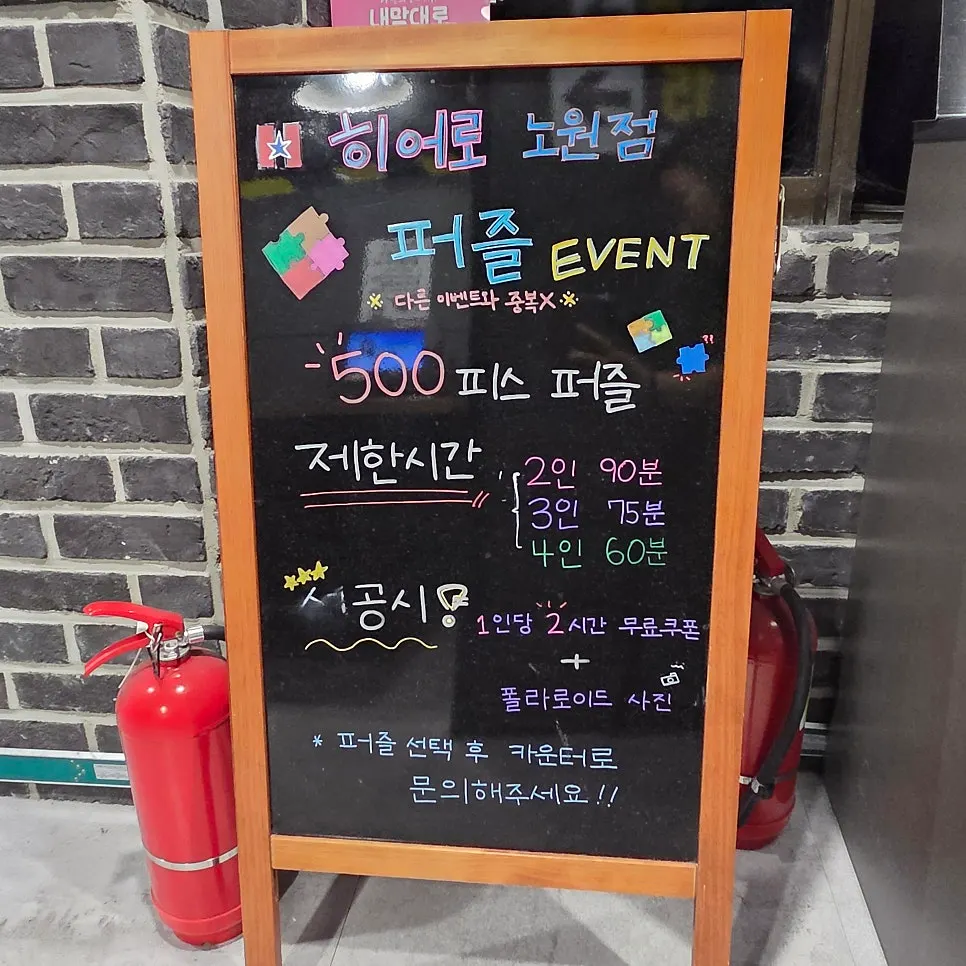 내맘대로
히어로 노원점
퍼즐 EVENT
다른 이벤트와 중복X
500 피스 퍼즐
제한시간
2인 90분
3인 75분
4인 60분
성공시!
1인당 2시간 무료쿠폰
+
폴라로이드 사진
* 퍼즐 선택 후 카운터로
문의해주세요!!